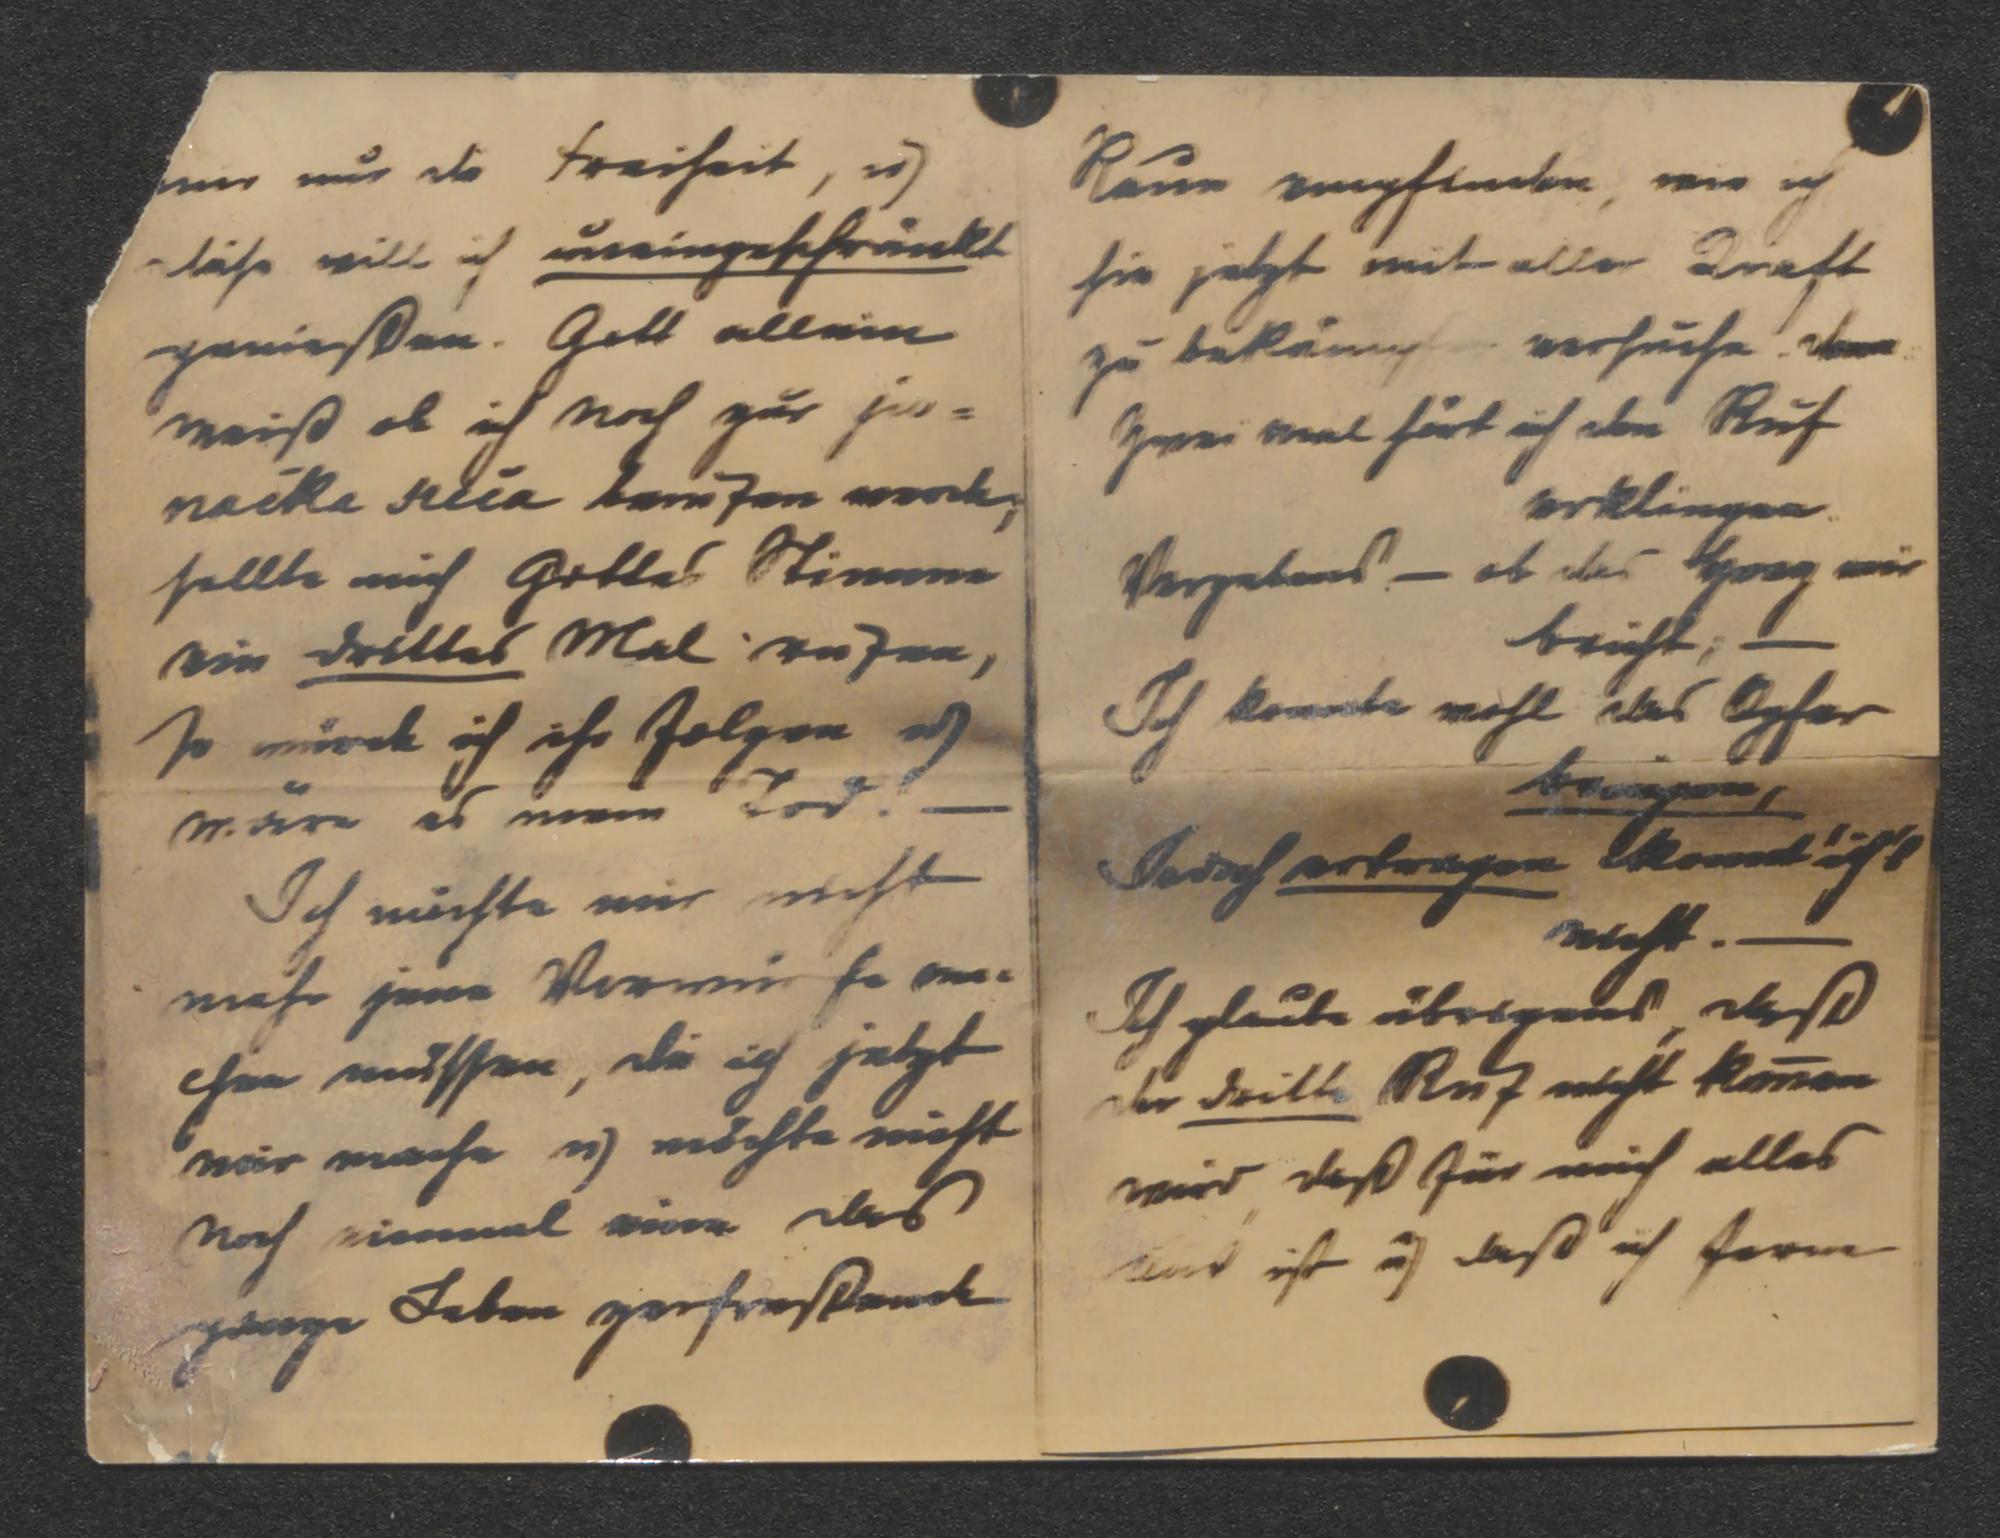 mir nur die Freiheit, u)
diese will ich uneingeschränkt
genießen. Gott allein
weiß ob ich noch zur ju-
načka sreća berufen werde;
sollte mich Gottes Stimme
ein drittes Mal rufen,
so würde ich ihr folgen u)
wäre es mein Tod. —
Ich möchte mir nicht
mehr jene Vorwürfe ma-
chen müssen, die ich jetzt
mir mache u) möchte nicht
noch einmal eine das
ganze Leben zerfressende
Reue empfinden, wie ich
sie jetzt mit aller Kraft
zu bekämpfen versuche denn
Zwei mal hört ich den Ruf
erklingen
Vergebens — ob das Herz mir
bricht; —
Ich konnte wohl das Opfer
bringen,
Jedoch ertragen konnt' ich's
nicht. —
Ich glaube übrigens, daß
der dritte Ruf nicht kommen
wird, daß für mich alles
ist u) daß ich ferne